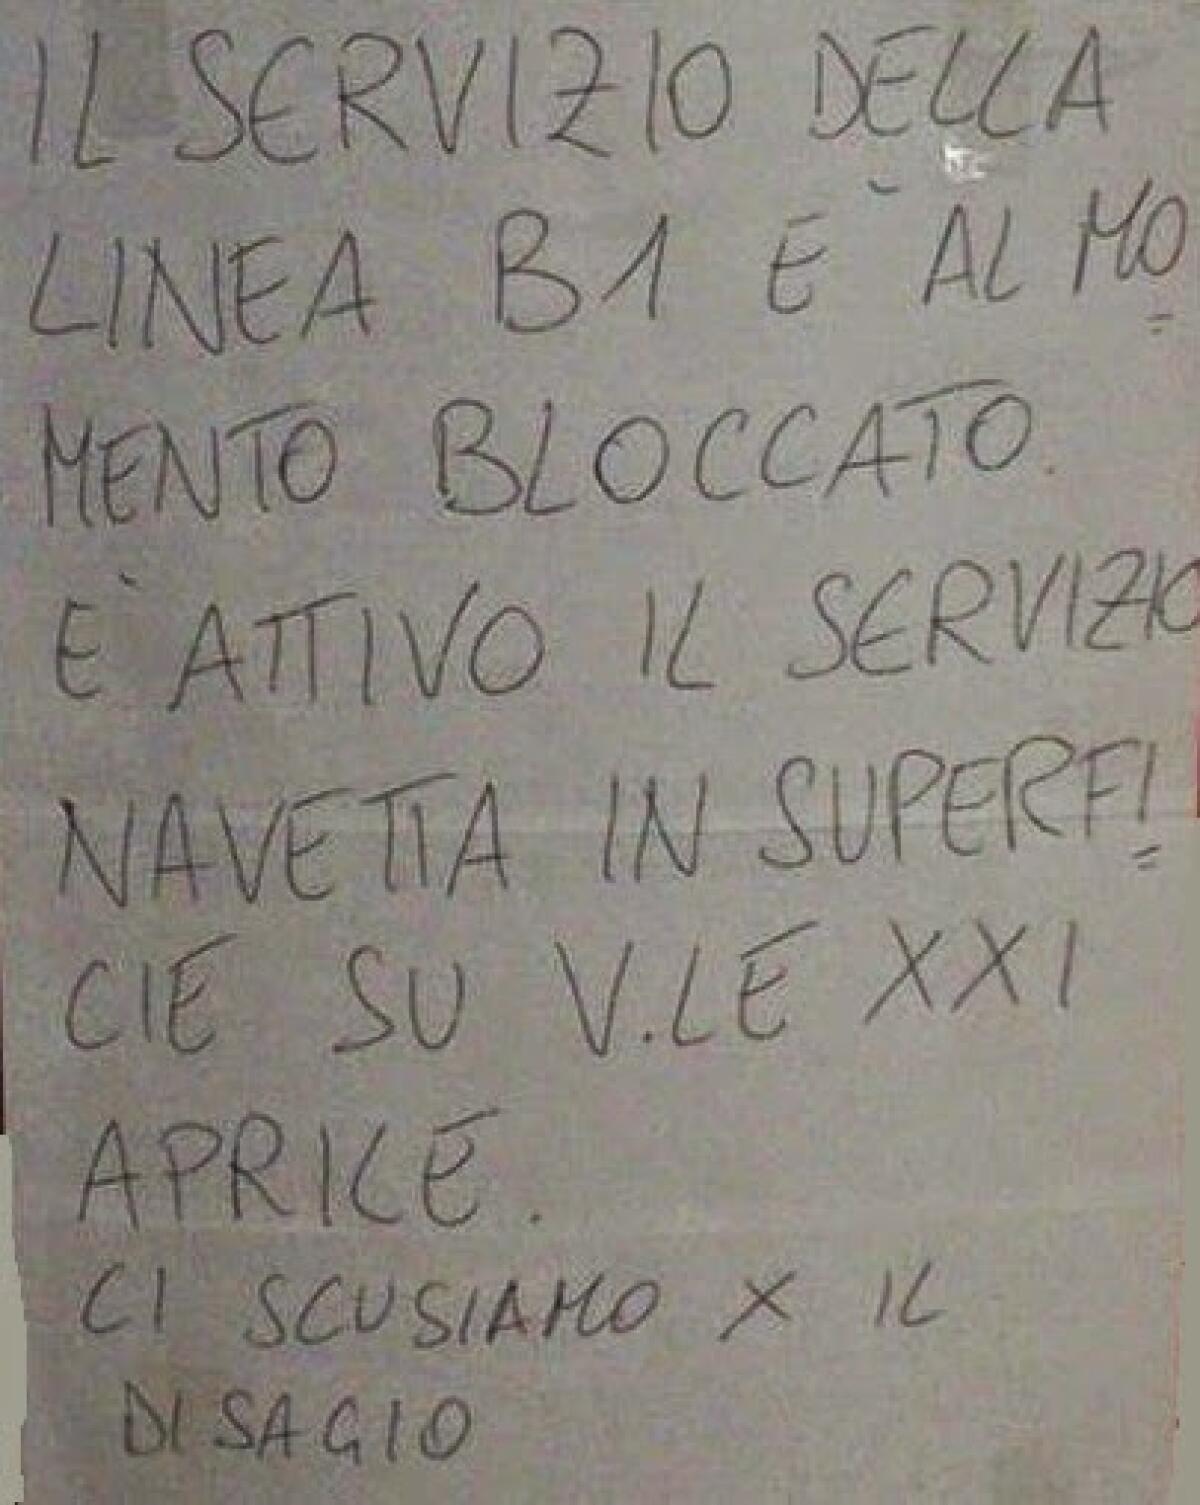 IL SERVIZIO DELLA
LINEA B1 E` AL MO=
MENTO BLOCCATO.
E` ATTIVO IL SERVIZIO
NAVETTA IN SUPERFI=
CIE SU V.LE XXI
APRILE.
CI SCUSIAMO X IL
DISAGIO